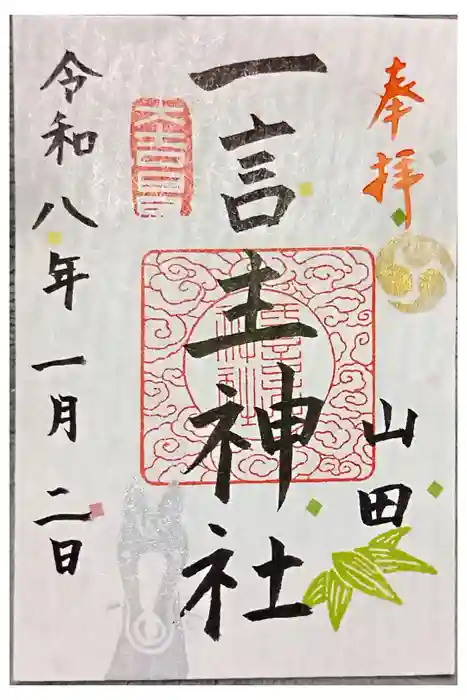 奉拝
山田
一言主神社
令和八年一月二日